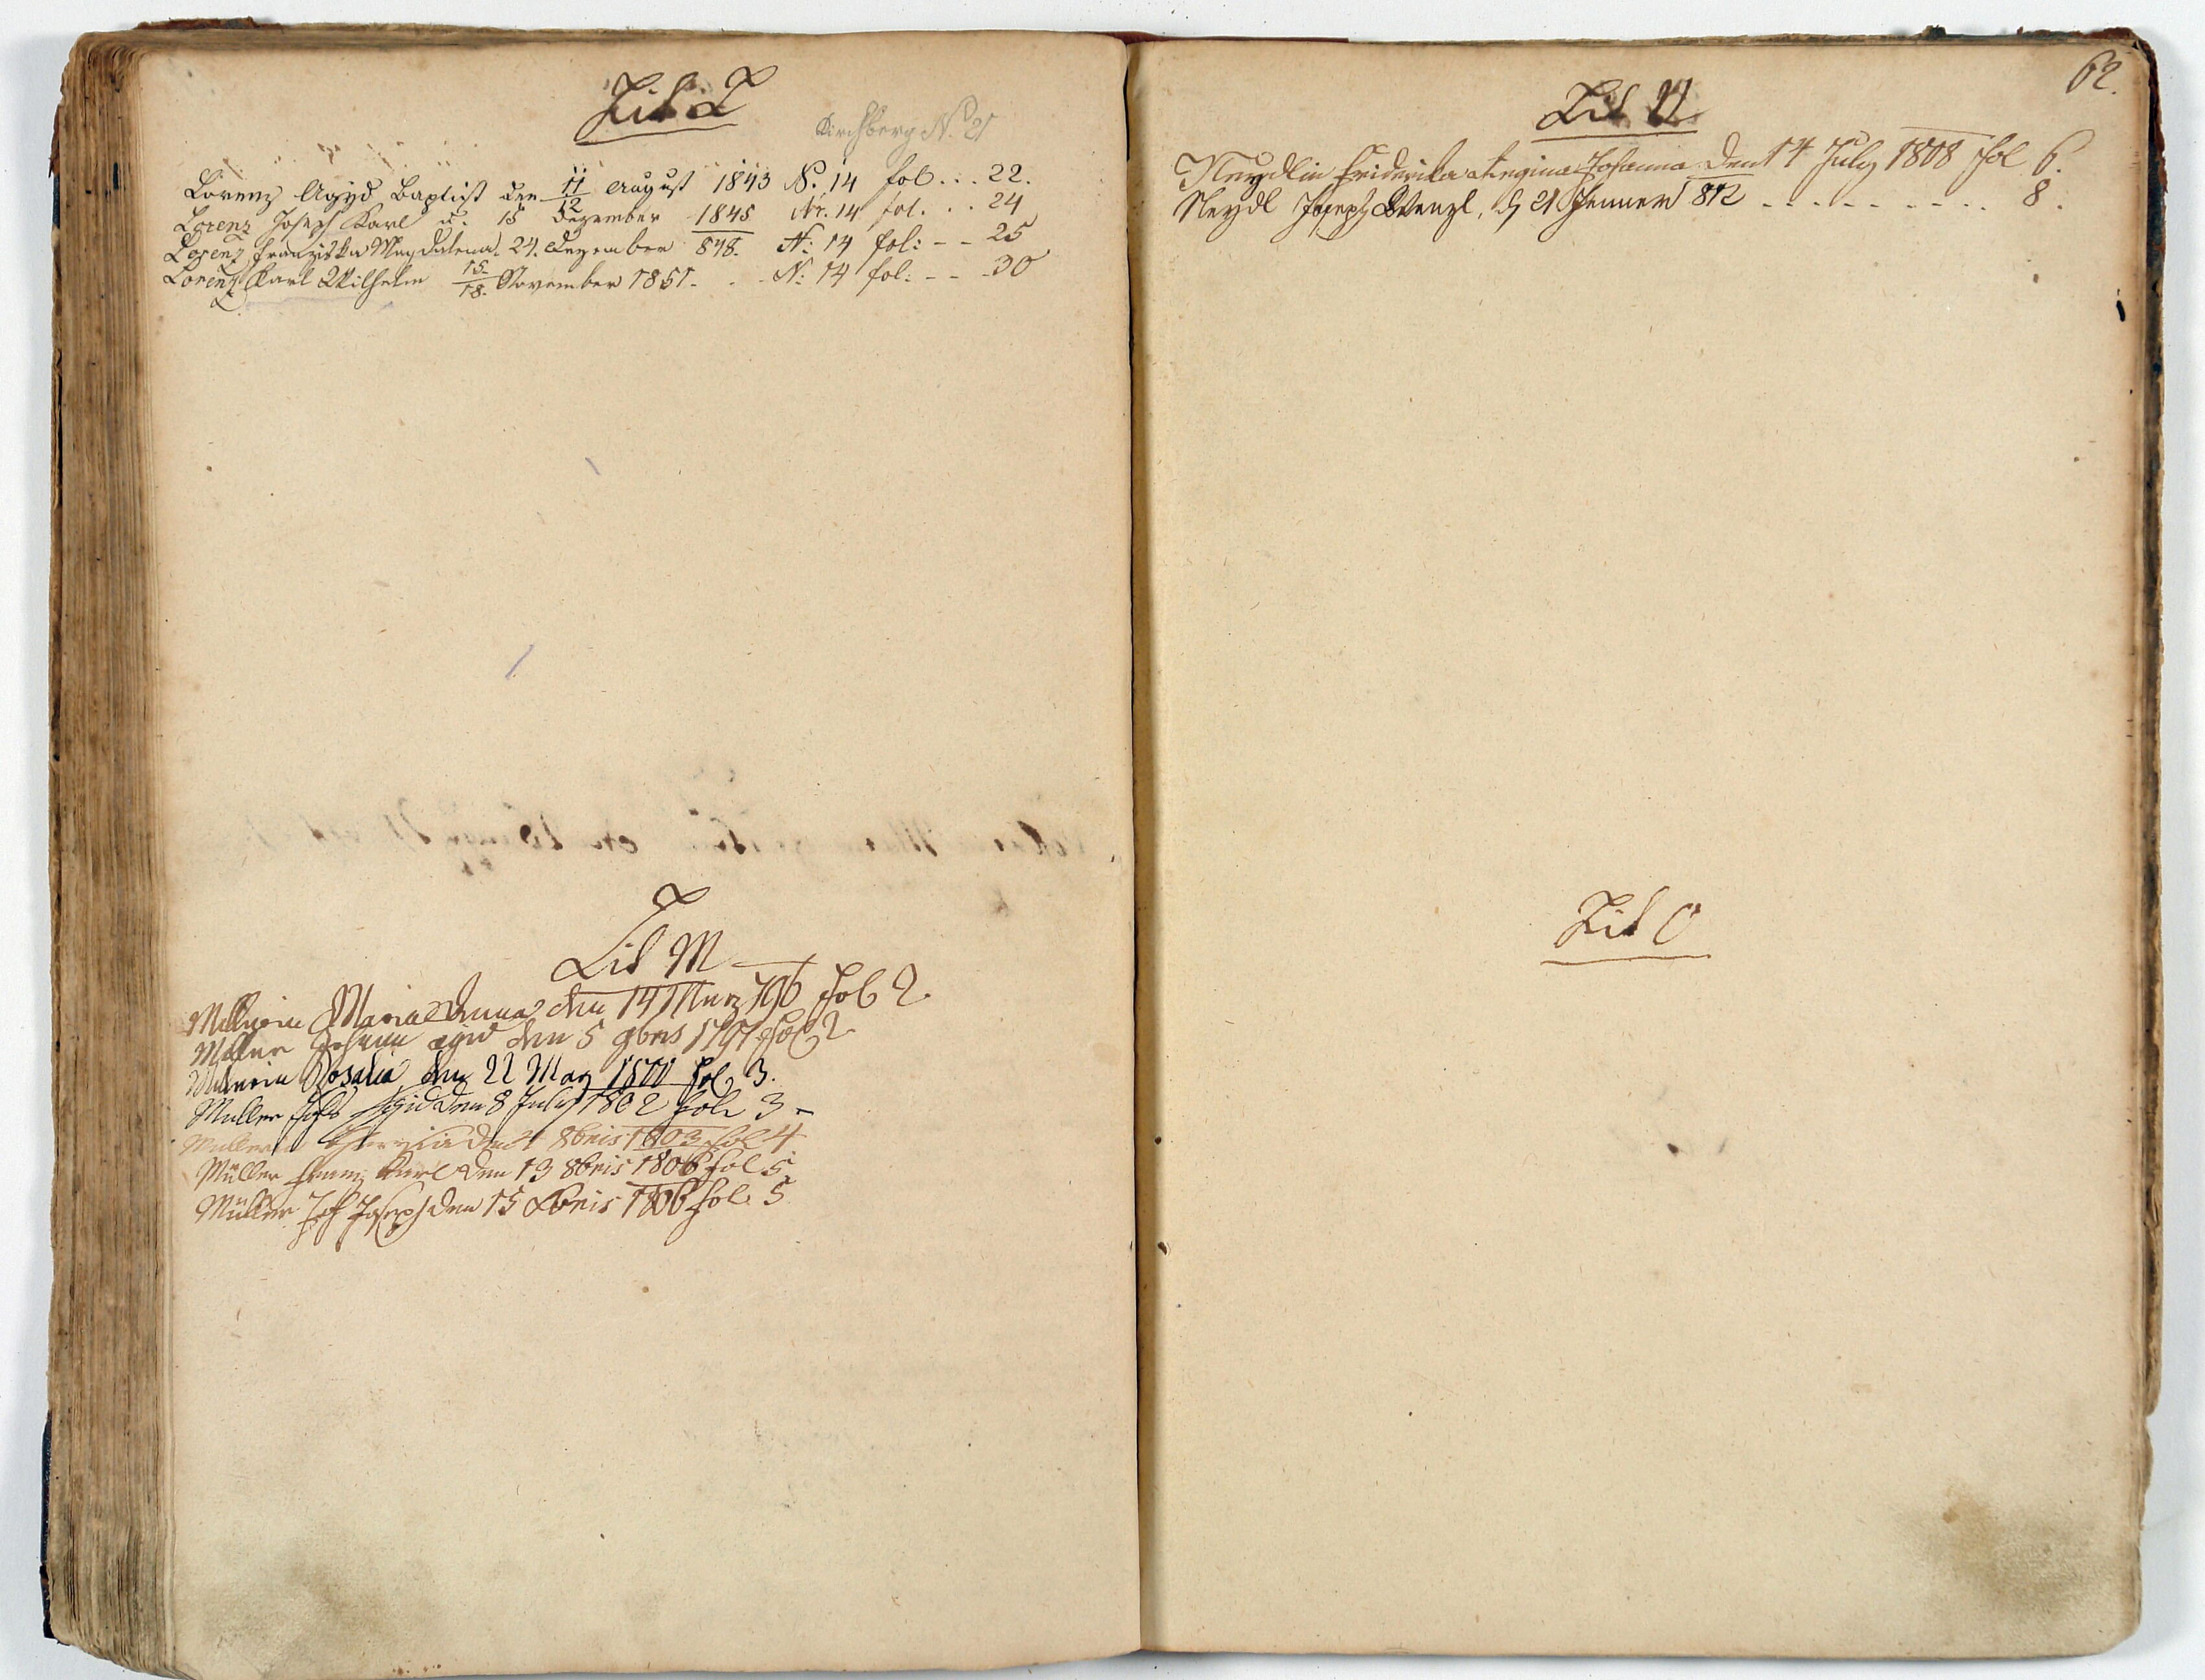 Lit. L
Kirchberg N. 21
Lorenz Aegyd Baptist den 11/12 August 1843 N. 14 fol... 22.
Lorenz Joseph Karl d. 15 Dezember 1845 Nr. 14 fol... 24
Lorenz Franziska Magdalena. 24. Dezember 848. N: 14 fol: - - 25
Lorenz Karl Wilhelm 15/18. November 1851. - - N: 14 fol: - - - 30
Lit M
Müllerin Maria Anna den 14 Marz 796 Fol 2.
Müller Johann Egid den 5 9bris 1797 Fol 2
Müllerin Rosalia den 22 May 1800 Fol 3.
Müller Joh Egid den 8 July 1802 Fol 3 -
Müllerin Theresia den 8bris 1803 Fol 4
Müller Franz Karl den 13 8bris 1806 Fol 5
Müller Joh Joseph den 15 Xbris 1806 Fol 5
62.
Lit N
Neydlin Friderika Regina Johanna den 14 July 1808 Fol 6.
Neydl Joseph Wenzl, d 21 Jenner 812 - - - - - - - - - 8.
Lit O